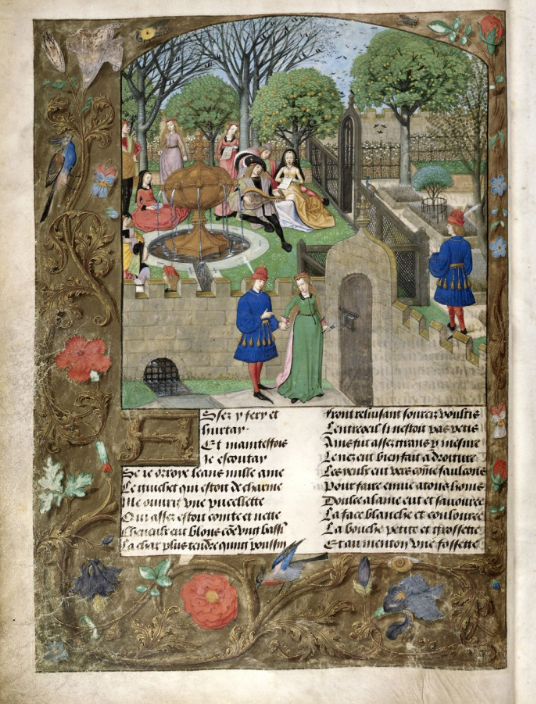 Assez y fery et
hurtay
Et maintesfois
Je escoutay
Se ie orroye leans nulle ame
Le wichet qui estoit de charme
Me ouurit vne pucellette
Qui assez estoit cointe et nette
Cheueulx eut blons cõe vng bassi
La char plus tendre qung poussin
Front reluisant sourcilz voultis
Lentreoeil si nestoit pas petis
Ains fut assez grans p mesure
Le nez eut bien fait a droiture
Les yeulx eut vers cõme faulcons
Pour faire enuie a tous homs
Doulce alaine eut et sauouree
La face blanche et coulouree
La bouche petite et grossette
Et au menton vne fossette